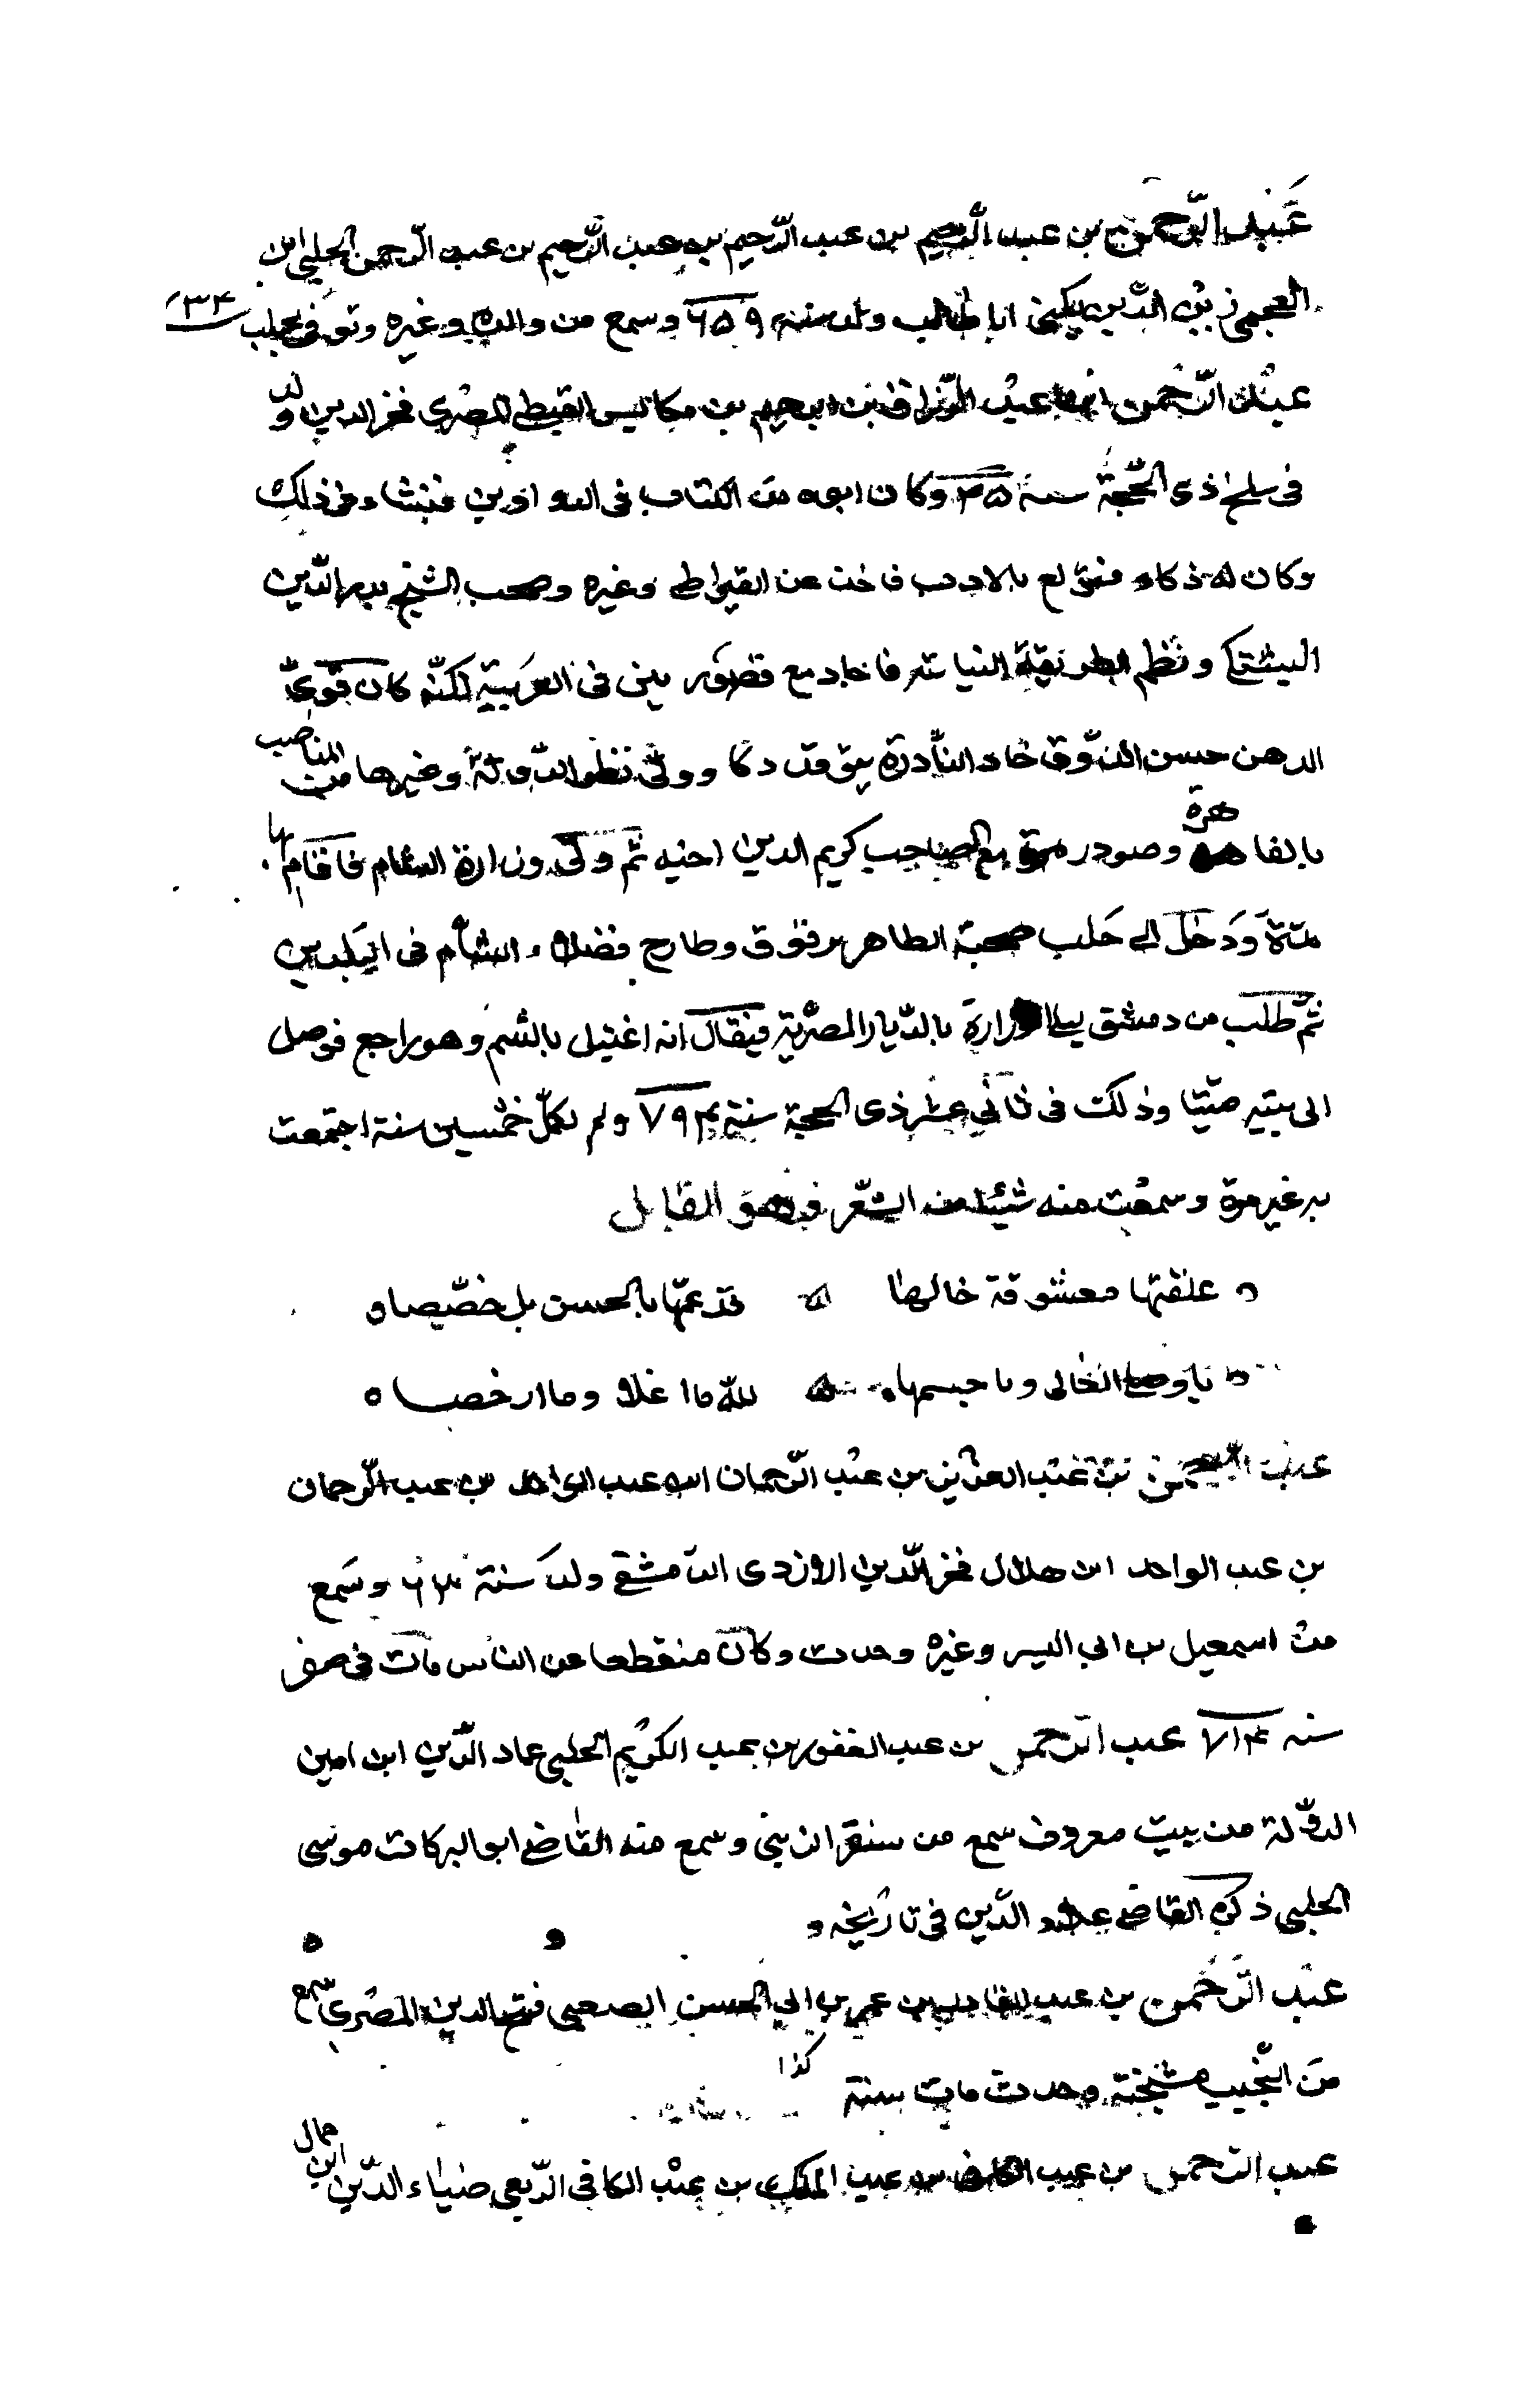 عبد الرحمن بن عبد الرحيم بن عبد الرحيم بن عبد الرحيم بن عبد الرحمن الحلبي ابن
العجمي زين الدين يكنى ابا طالب ولد سنة ٦٥٩ وسمع من والده وغيره وتوفي بحلب ٧٣٤
عبد الرحمن بن عبد الرزاق بن ابراهيم بن مكانس القبطي المصرى فخر الدين ولد
فى سلخ ذى الحجة سنة ٧٤٥ وكان ابوه من الكتاب فى الدواوين فنشاء فى ذلك
وكان له ذكاء فتولع بالادب فاخذ عن القيراطى وغيره وصحب الشيخ بدر الدين
البشتكى ونظم الطريقة النباتية فاجاد مع قصور بين فى العربية لكنه كان قوى
الذهن حسن الذوق حاد النادرة يتوقد ذكا وولى نظر الدولة وغيرها من المناصب
بالقاهرة وصودر مرة مع الصاحب كريم الدين اخيه ثم ولى وزارة الشام فاقام بها
مدة ودخل الى حلب صحبة الظاهر برقوق وطارح فضلاء الشأم فى البلدين
ثم طلب من دمشق ليلى الوزارة بالديار المصرية فيقال انه اغتيل بالسم وهو راجع فوصل
الى بيته ميتا وذلك فى ثانى عشر ذى الحجة سنة ٧٩٤ ولم يكمل خمسين سنة اجتمعت
به غير مرة وسمعت منه شيئا من الشعر فهو القايل
علقتها معشوقة خالها ۞ قد عمها بالحسن بل خصصا
يا وصلها الغالى ويا جسمها ۞ لله ما اغلا وما ارخصا
عبد الرحمن بن عبد العزيز بن عبد الرحمان ابن عبد الواحد بن عبد الرحمان
بن عبد الواحد ابن هلال فخر الدين الازدى الدمشقى ولد سنة وسمع
من اسمعيل بن ابى اليسر وغيره وحدث وكان منقطعا عن الناس مات فى صفر
سنه ٧١٤ عبد الرحمن بن عبد الغفور بن عبد الكريم الحلبى عماد الدين ابن امين
الدولة من بيت معروف سمع من سنقر الزينى وسمع منه القاضى ابو البركات موسى
الحلبى ذكره القاضى علاء الدين فى تاريخه
عبد الرحمن بن عبد القادر بن عمر بن ابى الحسن الصعبى فتح الدين المصرى سمع
من النجيب مشيخته وحدث مات سنة كذا
عبد الرحمن بن عبد الكافى بن عبد الملك بن عبد الكافى الربعى ضياء الدين ابن جمال